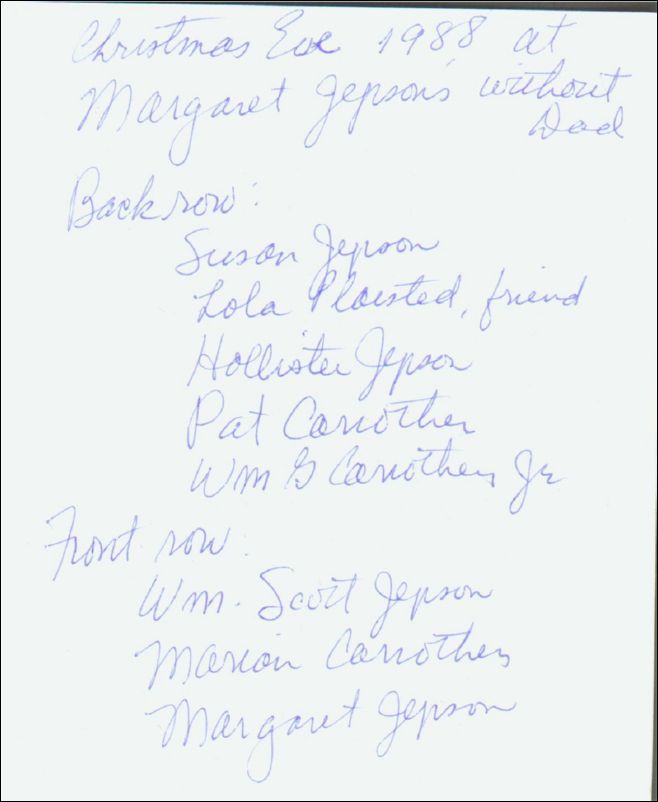 Christmas Eve 1988 at
Margaret Jepson's without
Dad
Back row:
Susan Jepson
Lola Plaisted, friend
Hollister Jepson
Pat Carrother
Wm G Carrothers Jr
Front row:
Wm. Scott Jepson
Marion Carrothers
Margaret Jepson